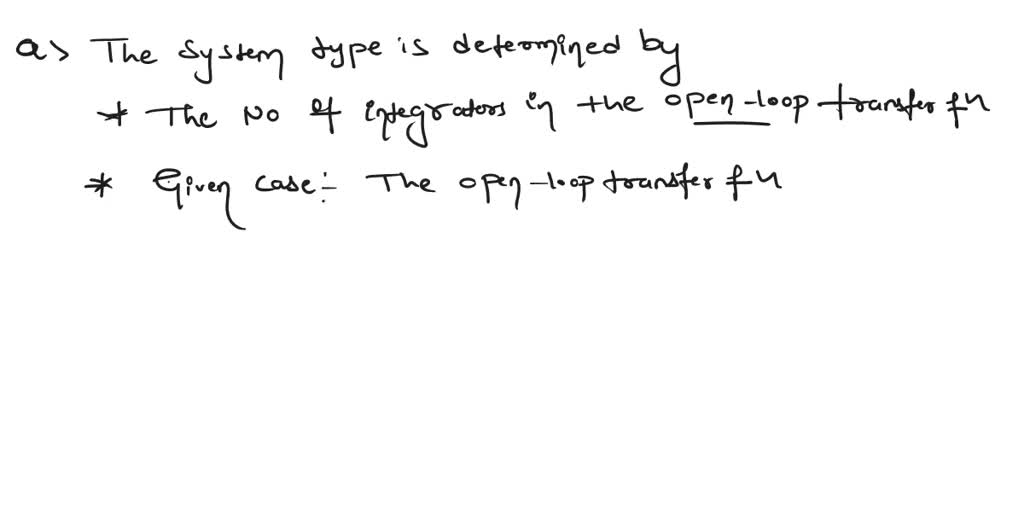 a> The system type is determined by
* The No of integrators in the open-loop transfer fn
* Given case:- The open-loop transfer fn